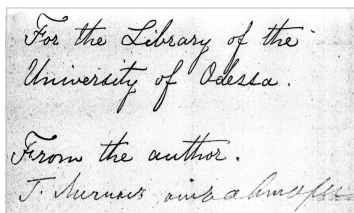 For the Library of the
University of Odessa.
From the author.